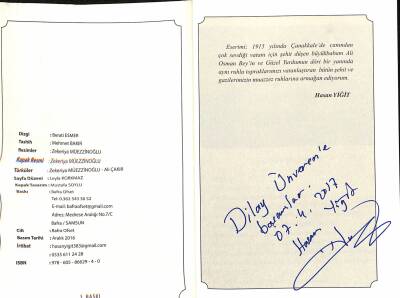 Dizgi : Berati ESMER
Tashih : Mehmet BAKIR
Resimler : Zekeriya MÜEZZİNOĞLU
Kapak Resmi : Zekeriya MÜEZZİNOĞLU
Türküler : Zekeriya MÜEZZİNOĞLU - Ali ÇAKIR
Sayfa Düzeni : Leyla KORKMAZ
Kapak Tasarım : Mustafa SOYLU
Baskı : Bafra Ofset
Tel: 0.362 543 38 52
E-mail: bafraofset@gmail.com
Adres: Medrese Aralığı No:7/C
Bafra / SAMSUN
Cilt : Bafra Ofset
Basım Tarihi : Aralık 2016
İrtibat : hasanyigit383@gmail.com
: 0535 611 24 28
ISBN : 978 - 605 - 66629 - 4 - 0
2. BASKI
Eserimi; 1915 yılında Çanakkale'de canından
çok sevdiği vatanı için şehit düşen büyükbabam Ali
Osman Bey'in ve Güzel Yurdumun dört bir yanında
aynı ruhla topraklarımızı vatanlaştıran bütün şehit ve
gazilerimizin muazzez ruhlarına armağan ediyorum.
Hasan YİĞİT
Dilay Ünveren'e
başarılar.
07.4.2017
Hasan Yiğit